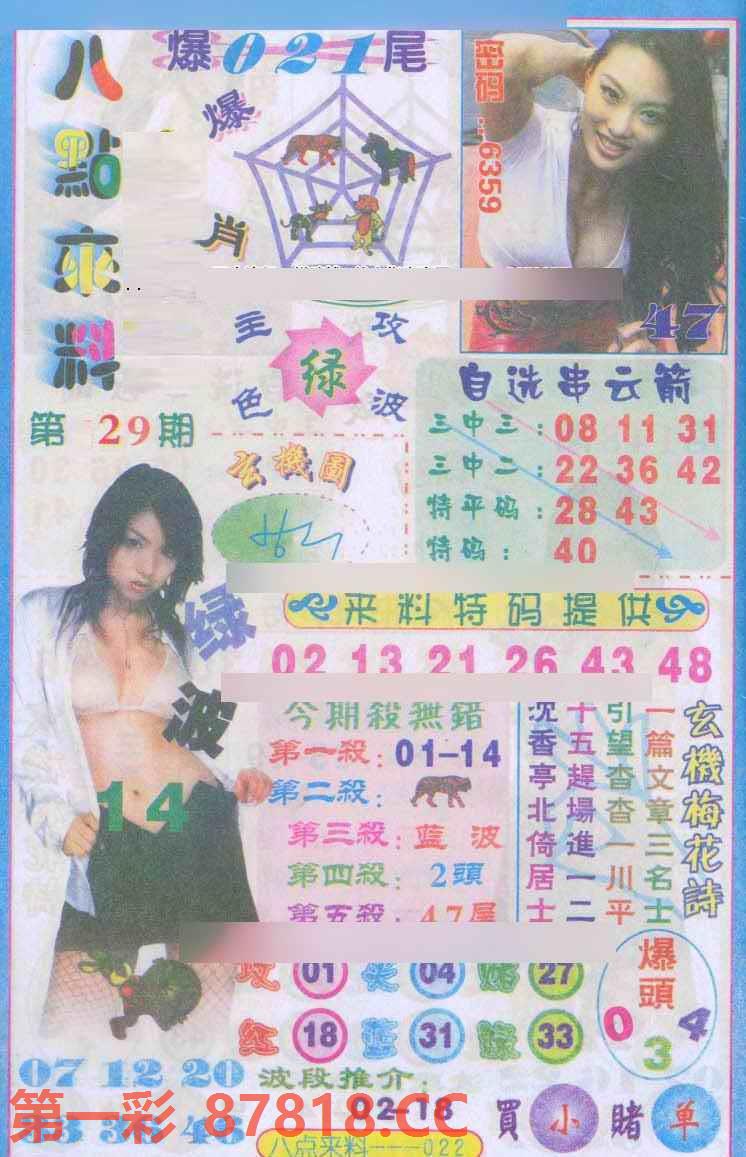 八點來料
爆021尾
爆肖
密码...6359
47
主攻
绿
色波
自选串云箭
第29期
三中三:08 11 31
三中二:22 36 42
特平码:28 43
特码:40
玄機圖
绿波
14
来料特码提供
02 13 21 26 43 48
今期殺無錯
第一殺:01-14
第二殺:
第三殺:蓝波
第四殺:2頭
第五殺:47尾
玄機梅花詩
一篇文章三名士
引望杳杳一川平
十五趕場進一二
沉香亭北倚居士
攻 01 04 27
红 18 蓝 31 綠 33
爆頭
0 3 4
07 12 20
波段推介:
02-18
買小賭单
第一彩 87818.CC
八点来料---022